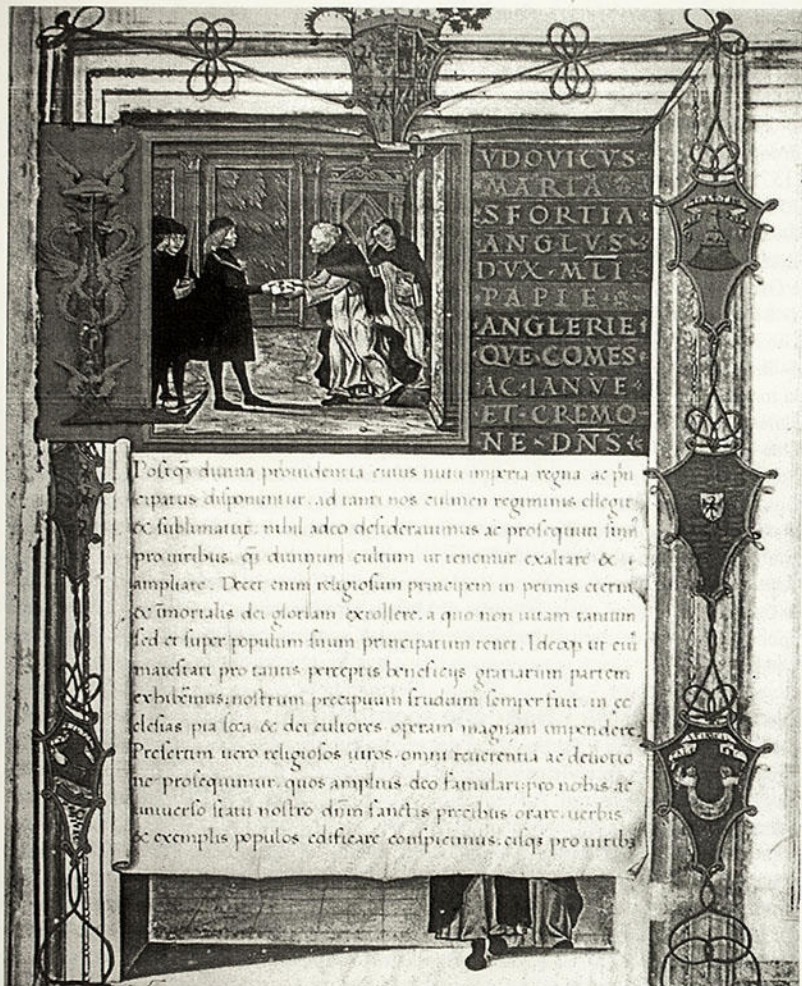 VDOVICVS
MARIA
SFORTIA
ANGLVS
DVX·MLI
PAPIE
ANGLERIE
QVE·COMES
AC·IANVE
ET·CREMO
NE·DN̄S
Postq̄ȝ diuina prouidentia cuius nutu imperia regna ac prī
cipatus disponuntur. ad tanti nos culmen regiminis ellegit
& sublimauit. nihil adeo desiderauimus ac prosequuti sum̄
pro uiribus. q̄ȝ diuinum cultum ut tenemur exaltare &
ampliare. Decet enim religiosum principem in primis eterni
& īmortalis dei gloriam extollere. a quo non uitam tantum
sed et super populum suum principatum tenet. Ideoqȝ ut eiū
maiestati pro tantis perceptis beneficijs gratiarum partem
exhibēmus: nostrum precipuum studium semper fuit. in ec
clesias pia loca & dei cultores operam magnam impendere.
Presertim uero religiosos uiros omni reuerentia ac deuotio
ne prosequimur. quos amplius deo famulari: pro nobis ac
uniuerso statu nostro dn̄m sanctis precibus orare. uerbis
& exemplis populos edificare conspicimus. eisqȝ pro uiribȝ